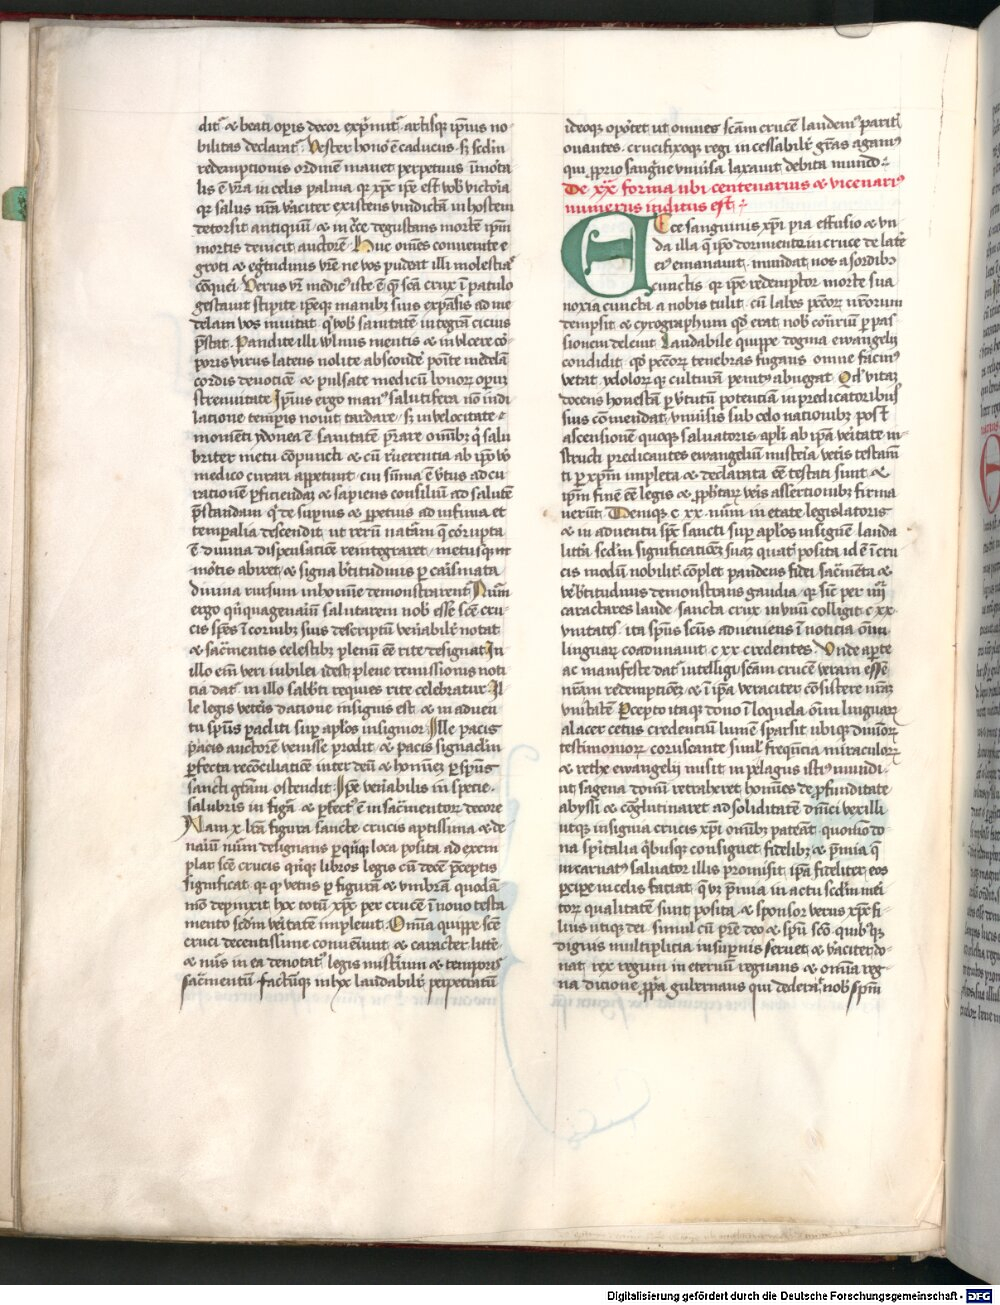 dit᷑ ⁊ beati oꝑis decor exp̃mit᷑. artisqꝫ ip̃ius no
bilitas declarat᷑. Vester honoꝛ ē caducus. sꝫ scdm
redemptionis ordinē manet perpetuus. im̄oꝛta
lis ē vr̃a in celis palma qꝛ xp̃c ip̃e est vob̃ victoria
qꝛ salus nr̃a v̓aciter existens vindictā in hostem
detorsit antiquū. ⁊ in cr̃ce degustans moꝛtē ip̃m
mortis deuicit auctorē. Huc om̃es conuenite e
groti ⁊ eg̓tudinis vr̃e ne vos pudeat illi molestia᷑
cōqueri. Verus vr̃ medic᷒ iste ē q᷒ scā crux ī patulo
gestauit stipite ip̃eqꝫ manibꝫ suis expansis ad me
delam vos inuitat. qͥ vob̃ sanitatē integrā cicius
p̃stat. Pandite illi wlnus mentis ⁊ in vlcere coꝛ
poris virus latens nolite absconde᷑ poīte medelā
cordis deuotiōe ⁊ pulsate medicū bonoꝝ operū
strenuitate. Ip̃ius ergo man᷒ salutifera nō indi
latione temp̃is nouit tardare. sꝫ in velocitate
momēti ydonea ē sanitatē p̃rare om̃ibꝫ qͥ salu
briter metu cōpuncti ⁊ cū r̃uerentia ab ip̃o v̓o
medico curari appetunt. cui sum̄a ē v̓tus ad cu
rationē ꝑficiendā ⁊ sapiens consiliū ad salutē
p̃standam. qͥ de sup̃ius ⁊ ꝑpetius ad infima et
temp̃alia descendit ut rerū natām q̄ coꝛrupta
ē diuina dispensatiōe reintegraret. metusqꝫ
moꝛtis abiret. ⁊ signa b̓titudinis ꝑ carism̄ata
diuina rursum inhoīme demonstrarent᷑. Num̄
ergo qūquagenariū salutarem nob̃ esse scē cru-
cis sp̄es ī coꝛnibꝫ suis descriptū ven̓abilit᷑ notat
⁊ sacr̄mentis celestibꝫ plenū eē rite designat. In
illo em̄ veri iubilei idest plene remissionis noti
cia dat᷑. in illo sabb̃ti requies rite celebratur. Il
le legis vet̓is datione insignis est. ⁊ in aduen
tu sp̃us paracliti sup̃ apl̃os insignior. Ille pacis
pacis auctorē venisse prodit ⁊ pacis signaclm̄
ꝑfecta recōciliatiōe inter deū ⁊ homīeꝫ ꝑ sp̄us
sancti gr̃am ostendit. Ip̃e ven̓abilis in specie.
salubris in figā ⁊ ꝑfect᷒ ē in sacr̃mentoꝝ decore
Nam x. l̃ra figura sancte crucis aptissima ⁊ de
nariū num̄ designans ꝑ qͥnqꝫ loca posita ad exem
plar scē crucis qͥnqꝫ libros legis cū decē p̃ceptis
significat. qꝛ qͥ vetus ꝑ figurā ⁊ vmbrā quodā
mō depinxit. hoc totū xp̃c per crucē ī nouo testa
mento scdm v̓itatē impleuit. Om̄ia quippe scē
cruci decentissime conueniunt ⁊ caracter litt̓e
⁊ nūs in ea denotat᷑. legis mist̓ium ⁊ temporis
sacr̃mentū. factūqꝫ in hoc laudabilr̃ perpetratū
ideoqꝫ opoꝛtet ut omnes scām crucē laudem᷒ parit̓
ouantes. crucifixoqꝫ regi incessabilr̃ gr̃as agam᷒
qui ꝓprio sangu̓ne vniu̓sa laxauit debita mundo.
De xxͣ forma ubi centenarius ⁊ vicenari᷒
numerus inditus est.
Ecce sanguinis xp̃i pia effusio ⁊ vn
da illa q̄ ip̃o dormiente in cruce de late᷑
ei᷒ emanauit. mundat nos a sordibꝫ
cunctis. qꝛ ip̃e redemptoꝛ morte sua
noxia cuncta a nobis tulit. cū labes pr̃coꝝ nr̃orum
dempsit ⁊ cyrographum qd̓ erat nob̃ cōt̓riū ꝑ pas
sionem deleuit. Laudabile quippe dogma ewangelij
condidit. qd̓ pecc̃oꝝ tenebras fugans omne facin᷒
vetat. ydoloꝝ qꝫ culturā penit᷒ abnegat. Qd̓ vitaꝫ
docens honestam ꝑ v̓tutū potentiam in predicatoribus
suis cōmendat. vniu̓sis sub celo nationibꝫ. post
ascensionē quoqꝫ saluatoris apl̃i ab ip̃a v̓eitate in-
structi predicantes ewangeliū mist̓ia vet̓is testam̄
ti ꝑ xp̃m impleta ⁊ declarata eē testati sunt. ⁊
ip̃m finē eē legis ⁊ ꝓph̃taꝝ veris assertionibꝫ firma
uerūt. Deniqꝫ c. xx. nūm in etate legislatoris
⁊ in aduentu sp̃c sancti sup̃ apl̃os insignē lauda
litt̓a scdm significatiōeꝫ suaꝫ quat᷒ posita id ē ī cru
cis modū nobilit᷑ cōplet. pandens fidei sacr̃mēta ⁊
ve᷑ b̓titudinis demonstrans gaudia. qꝛ sic̃ per iiij
caractares laude᷑ sancta crux in vnū colligit c. xx.
vnitates. ita sp̃us scūs adueniens ī noticia oīm
linguaꝝ coadunauit c. xx. credentes. Vnde apte
ac manifeste dat᷑ intelligi scām crucē veram esse
nr̃am redemptiōeꝫ ⁊ ī ip̃a veraciter cōsistere nr̃aꝫ
vnitatē. Percepto itaqꝫ dono ī loquela oīm linguaꝝ
alacer cetus credentiū lumē sparsit ubiqꝫ diuīoꝝ
testimonioꝝ. coruscante simul freq̄ntia miraculoꝝ
⁊ rethe ewangelij misit in pelagus isti᷒ mundi.
ut sagena domī retraheret homīes de ꝓfunditate
abyssi. ⁊ cōglutinaret ad soliditatē dn̄ici vexilli
utqꝫ insignia crucis xp̃i om̄ibꝫ pateāt. quoniō do
na sp̃italia qͥbusqꝫ consignet fidelibꝫ ⁊ p̃mia q̄
incarnat᷒ saluator illis promisit. ip̃a fideliter eos
ꝑcipe incelis faciat. q̄ vꝫ p̃mia in actu scdm meri
toꝝ qualitatē sunt posita. ⁊ sponsor verus xp̃c fi-
lius utiqꝫ dei. simul cū pr̃e deo ⁊ sp̃u scō. quibꝰqꝫ
dignis multiplicia insup̃nis seruet ⁊ v̓aciter do-
nat. rex regum in et̓num regnans ⁊ om̄ia reg-
na dicione ꝓp̃a gubernans qui dederat nob̃ sp̃m
Digitalisierung gefördert durch die Deutsche Forschungsgemeinschaft - DFG